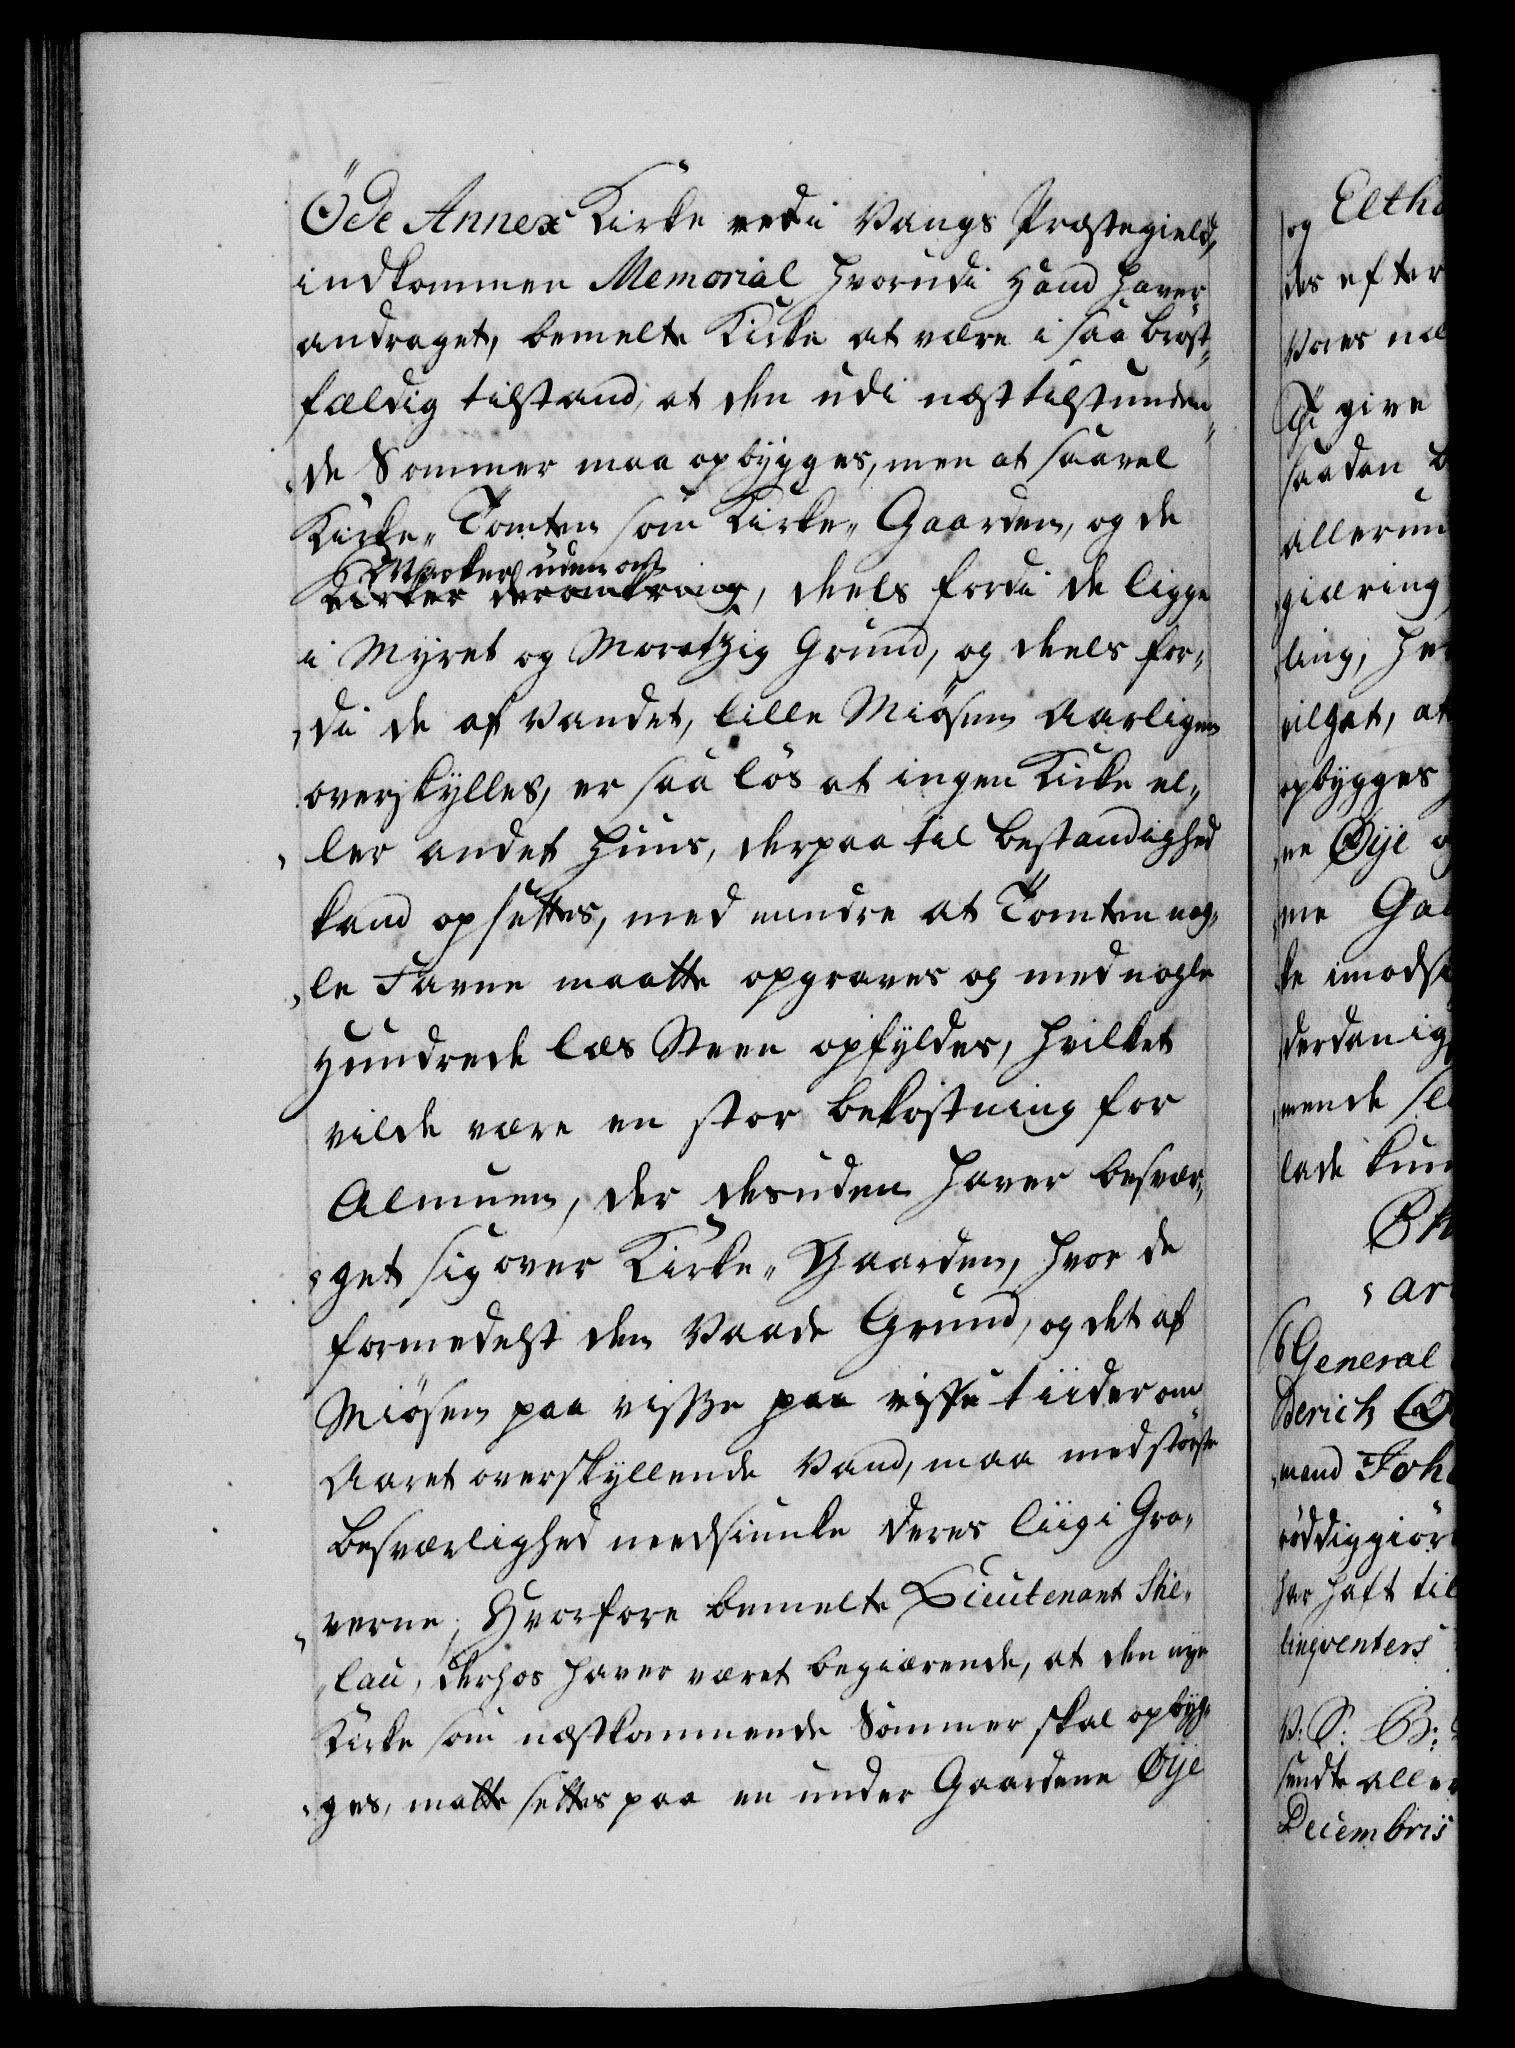 Öde Annex Kirke udi Vangs Præstegield,
indkommen Memorial hvorudi hand haver
andraget, bemelte Kirke at være i saa bröst-
fældig tilstand, at den udi næsttilstunden-
de Sommer maa opbygges, men at saavel
Kirke-Tomten som Kirke-Gaarden, og de
Marker uden om
Kirker deromkring, deels fordi de ligge
i Myret og Moratzig Grund, og deels for-
di de af Vandet, lille Miösen Aarligen
overskylles, er saa lös at ingen Kirke el-
ler andet Huus, derpaa til bestandighed
kand opsettes, med mindre at Tomten nog-
le Favne maatte opgraves og med nogle
Hundrede læs Steen opfyldes, hvilket
vilde være en stor bekostning for
Almuen, der desuden haver besvær-
get sig over Kirke-Gaarden, hvor de
formedelst den Vaade Grund, og det af
Miösen paa visse paa visse tiider om
Aaret overskyllende Vand, maa med störste
besværlighed nedsiunke deres liig i Gra-
verne; Hvorfore bemelte Lieutenant Stie-
lau, derhos haver været begiærende, at den nye
Kirke som næstkommende Sommer skal opbyg-
ges, matte settes paa en under Gaardene Øje
og Elth
des efter
Vores
Thi give
saadan
allerun
giæring
ling, he
vilget, at
opbygges
ne Øije o
ne Ga
ke imodst
derdanig
mende
lade
ar
6 General
derich
mand Joh
har haft til
lingventers
V: S: B:
sendte aller
Decembris